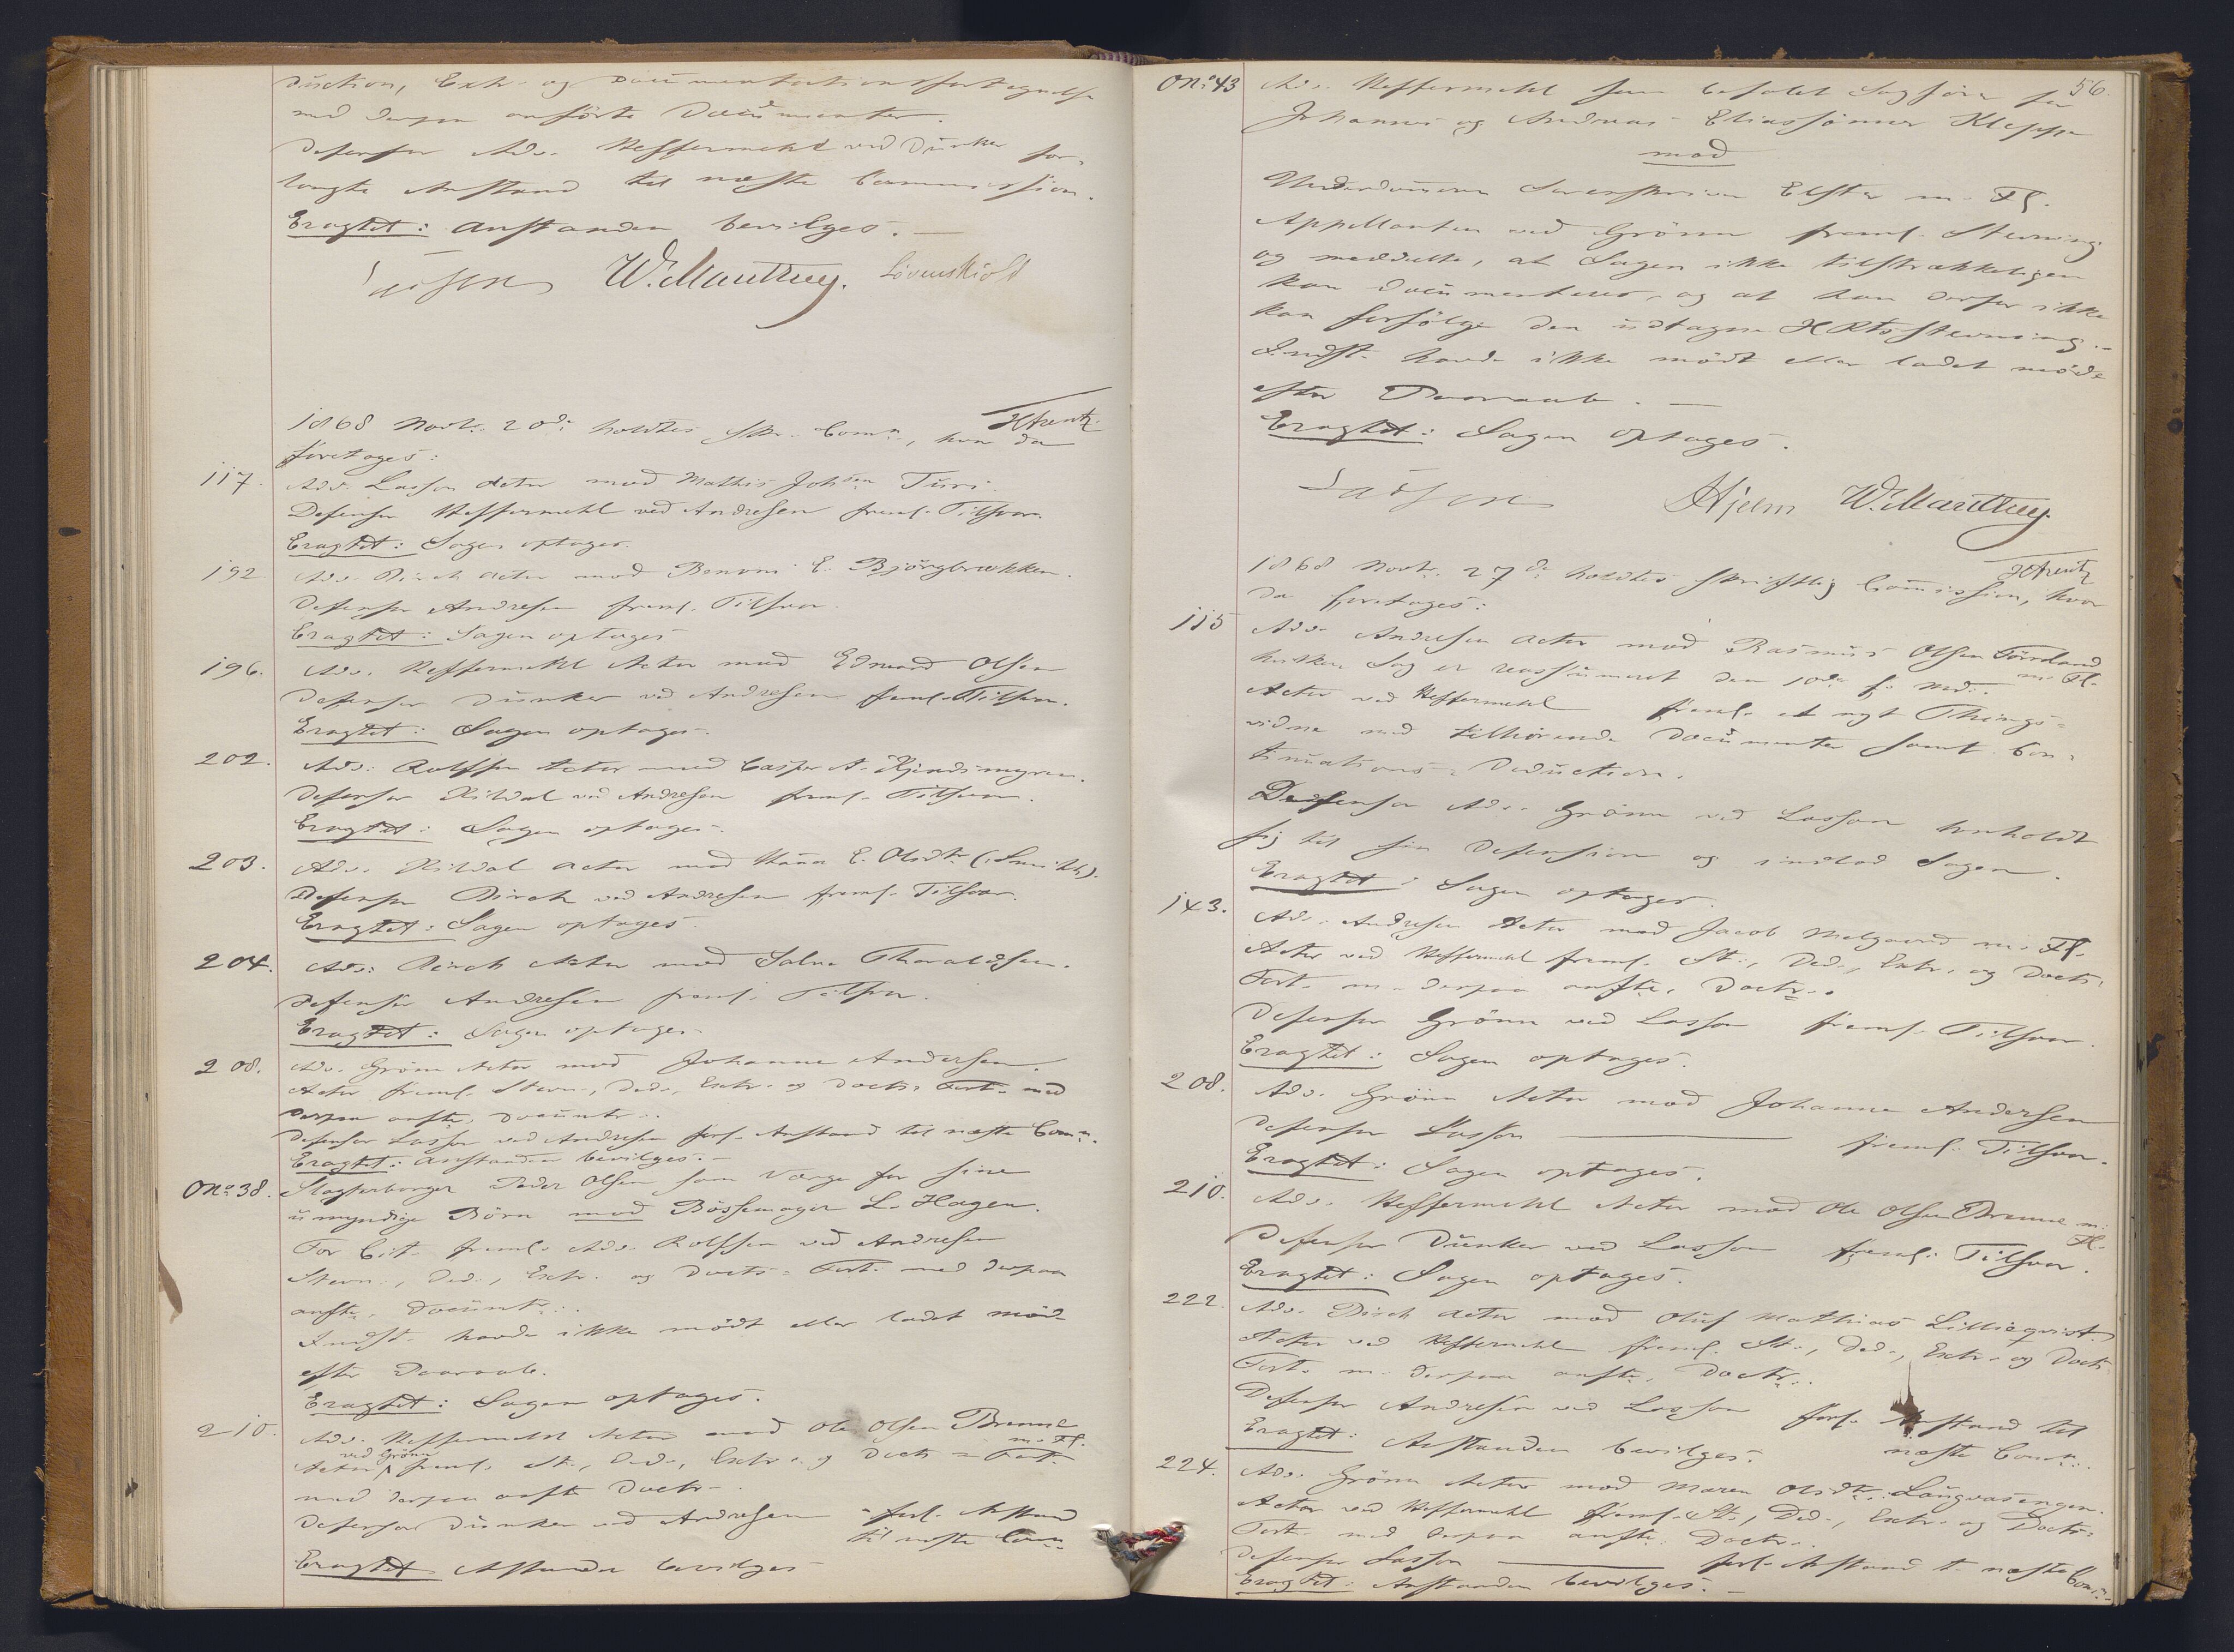 duction, Extr. og Documentationsfortegnelse
med derpaa anførte Documenter.
Defensor Adv. Heffermehl ved Dunker for-
langte Anstand til næste Commission.
Eragtet: Anstanden bevilges. —
W. Manthey. Løvenskiold
HArentz
1868 Novbr. 20de holdtes skr. Comn., hvor da
foretoges:
117. Adv. Lasson Actor mod Mathis Johsen Turi.
Defensor Heffermehl ved Andresen freml. Tilsvar.
Eragtet: Sagen optages.
192. Adv. Birch Actor mod Benoni E. Bjørgbækken.
Defensor Andresen freml. Tilsvar.
Eragtet: Sagen optages.
196. Adv. Heffermehl Actor mod Edvard Olsen
Defensor Dunker ved Andresen freml. Tilsvar.
Eragtet: Sagen optages.
202. Adv. Rolfsen Actor mod Casper A.
Defensor Kildal ved Andresen freml. Tilsvar.
Eragtet: Sagen optages.
203. Adv. Kildal Actor mod E. Olsdtr (Smith).
Defensor Birch ved Andresen freml. Tilsvar.
Eragtet: Sagen optages.
204. Adv. Birch Actor mod Salve Tharaldsen.
Defensor Andresen freml. Tilsvar.
Eragtet: Sagen optages.
208. Adv. Grönn Actor mod Johanne Andersen.
Actor freml. Stevn., Ded., Extr. og Docts. Fort. med
derpaa anfte. Documtr.
Defensor Lasson ved Andresen forl. Anstand til næste Comn.
Eragtet: Anstanden bevilges. —
No. 38. Slagterborger Peder Olsen som Værge for sine
umyndige Børn mod Bøssemager L. Hagen.
For Cit. freml. Adv. Rolfsen ved Andresen
Stevn., Ded., Extr. og Docts. Fort. med derpaa
anfte. Documtr.
Indst. havde ikke mödt eller ladet möde
efter Paaraab.
Eragtet: Sagen optages.
210. Adv. Heffermehl Actor mod Ole Olsen Brenne m. Fl.
Actor ved Grönn freml. St., Ded., Extr. og Docts = Fort.
med derpaa anfte Doctr.
Defensor Dunker ved Andresen forl. Anstand
til næste Comn.
Eragtet Anstanden bevilges
56.
No. 43 Adv. Heffermehl som befalet Sagfører for
Johannes og Andreas Eliassønner Kleppe
mod
Underdommeren Sorenskriver Elster m. Fl.
Appellanten ved Grönn freml. Stevning
og meddeelte, at Sagen ikke tilstrækkeligen
kan documenteres, og at han derfor ikke
kan forfølge den udtagne HRtsstevning.
Indst. havde ikke mödt eller ladet möde
efter Paaraab. —
Eragtet: Sagen optages.
Hjelm W. Manthey.
HArentz
1868 Novbr. 27de holdtes skriftlig Commission, hvor
da foretoges:
115 Adv. Andresen Actor mod Rasmus Olsen Førsland m. Fl.
hvilken Sag er reassumeret den 10de f. Md.
Actor ved Heffermehl freml. et nyt Things-
vidne med tilhørende Documenter samt Con-
tinuations-Deduction.
Defensor Adv. Grönn ved Lasson henholdt
sig til sin Defension og indlod Sagen.
Eragtet: Sagen optages.
143. Adv. Andresen Actor mod Jacob Melgaard m. Fl.
Actor ved Heffermehl freml. St., Ded., Extr. og Docts.
Fort. m. derpaa anfte. Doctr.
Defensor Grönn ved Lasson freml. Tilsvar.
Eragtet: Sagen optages.
208. Adv. Grönn Actor mod Johanne Andersen
Defensor Lasson — freml. Tilsvar.
Eragtet: Sagen optages.
210. Adv. Heffermehl Actor mod Ole Olsen Brenne m. Fl.
Defensor Dunker ved Lasson freml. Tilsvar.
Eragtet: Sagen optages.
222. Adv. Birch Actor mod Oluf Mathias Lilliequist.
Actor ved Heffermehl freml. St., Ded., Extr. og Docts
Fort. m. derpaa anfte. Doctr.
Defensor Andresen ved Lasson forl. Anstand til
næste Comn.
Eragtet: Anstanden bevilges.
224. Adv. Grönn Actor mod Maren Olsdtr. Langvasengen.
Actor ved Heffermehl freml. St., Ded., Extr. og Docts
Fort. med derpaa anfte. Doctr.
Defensor Lasson — forl. Anstand t. næste Comn.
Eragtet: Anstanden bevilges. —